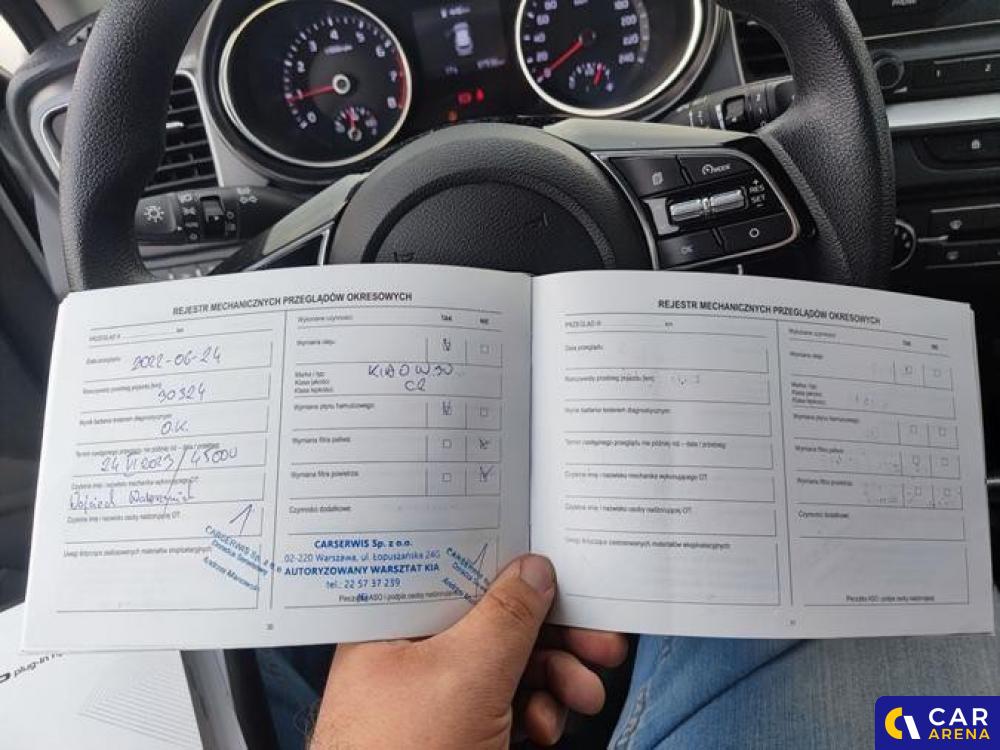 REJESTR MECHANICZNYCH PRZEGLĄDÓW OKRESOWYCH
PRZEGLĄD R km
Data przeglądu: 2022-06-24
Rzeczywisty przebieg pojazdu [km]: 30324
Wynik badania testerem diagnostycznym:
O.K.
Termin następnego przeglądu nie później niż – data / przebieg:
24 VI 2023 / 45000
Czytelne imię i nazwisko mechanika wykonującego OT:
Wojciech
Czytelne imię i nazwisko osoby nadzorującej OT:
Uwagi dotyczące zastosowanych materiałów eksploatacyjnych:
CARSERWIS Sp. z o.o.
Doradca Serwisowy
30
Wykonane czynności: TAK NIE
Wymiana oleju:
Marka / typ:
Klasa jakości:
Klasa lepkości:
C2
Wymiana płynu hamulcowego:
Wymiana filtra paliwa:
Wymiana filtra powietrza:
Czynności dodatkowe:
CARSERWIS Sp. z o.o.
02-220 Warszawa, ul. Łopuszańska 24G
AUTORYZOWANY WARSZTAT KIA
tel.: 22 57 37 239
Pieczątka ASO i podpis osoby nadzorującej
CARSERWIS Sp.
Doradca
REJESTR MECHANICZNYCH PRZEGLĄDÓW OKRESOWYCH
PRZEGLĄD R km
Data przeglądu:
Rzeczywisty przebieg pojazdu [km]:
Wynik badania testerem diagnostycznym:
Termin następnego przeglądu nie później niż – data / przebieg:
Czytelne imię i nazwisko mechanika wykonującego OT:
Czytelne imię i nazwisko osoby nadzorującej OT:
Uwagi dotyczące zastosowanych materiałów eksploatacyjnych:
31
Wykonane czynności: TAK NIE
Wymiana oleju:
Marka / typ:
Klasa jakości:
Klasa lepkości:
Wymiana płynu hamulcowego:
Wymiana filtra paliwa:
Wymiana filtra powietrza:
Czynności dodatkowe:
Pieczątka ASO i podpis osoby nadzorującej
MODE
RES
SET
OK
plug-in
CAR
ARENA